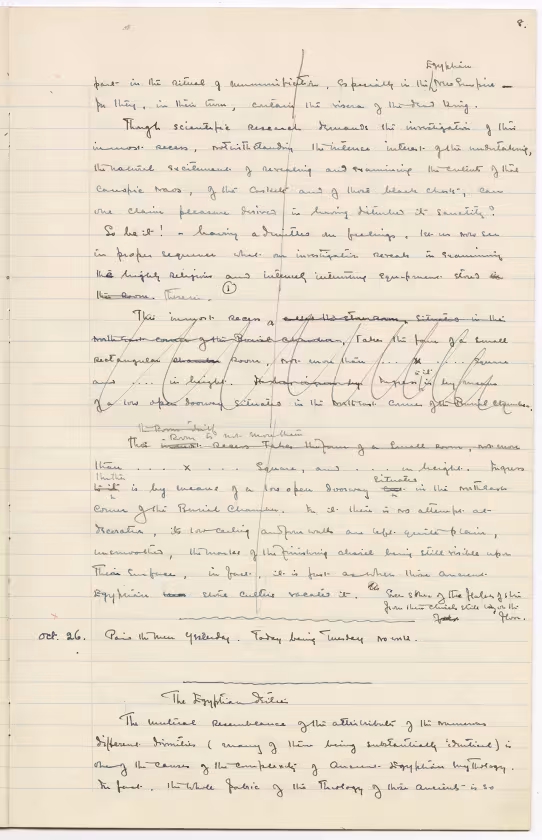 8.
Egyptian
part in the ritual of mummification, especially in the New Empire —
for they, in their turn, contain the viscera of the dead King.
Though scientific research demands the investigation of this
inmost recess, notwithstanding the intense interest of the undertaking,
the natural excitement of revealing and examining the contents of that
canopic , of the caskets and of those black chests, can
one claim pleasure derived in having disturbed its sanctity?
So be it! - having admitted our feelings, let us now see
in proper sequence what an investigation reveals in examining
the highly religious and intensely interesting equipment stored in
the Room. therein. ①
This inmost recess a called the storeroom, situated in the
north-east corner of the Burial Chamber, takes the form of a small
rectangular chamber room, not more than ... x ... square
and .... in height. Ingress is by means
of a low open doorway situated in the north-east corner of the Burial Chamber.
the Room itself
Room is not more than
This inmost recess takes the form of a small room, no more
than ..... x ..... square, and ..... in height. Ingress
situated
is by means of a low open doorway in the north-east
corner of the Burial Chamber. In it there is no attempt at
decoration, its low ceiling and four walls are left quite plain,
unsmoothed, the marks of the finishing chisel being still visible upon
their surface, in fact, it is just as when those ancient
Egyptian vacated it. Even some of the flakes of stone
from their chisels still lay on the
floor.
Oct. 26. Paid the men yesterday. Today being Tuesday no work.
The Egyptian Deities
The mutual resemblance of the attributes of the numerous
different divinities (many of them being substantially identical) is
one of the causes of the complexity of Ancient Egyptian mythology.
In fact, the whole fabric of the Theology of those Ancients is so